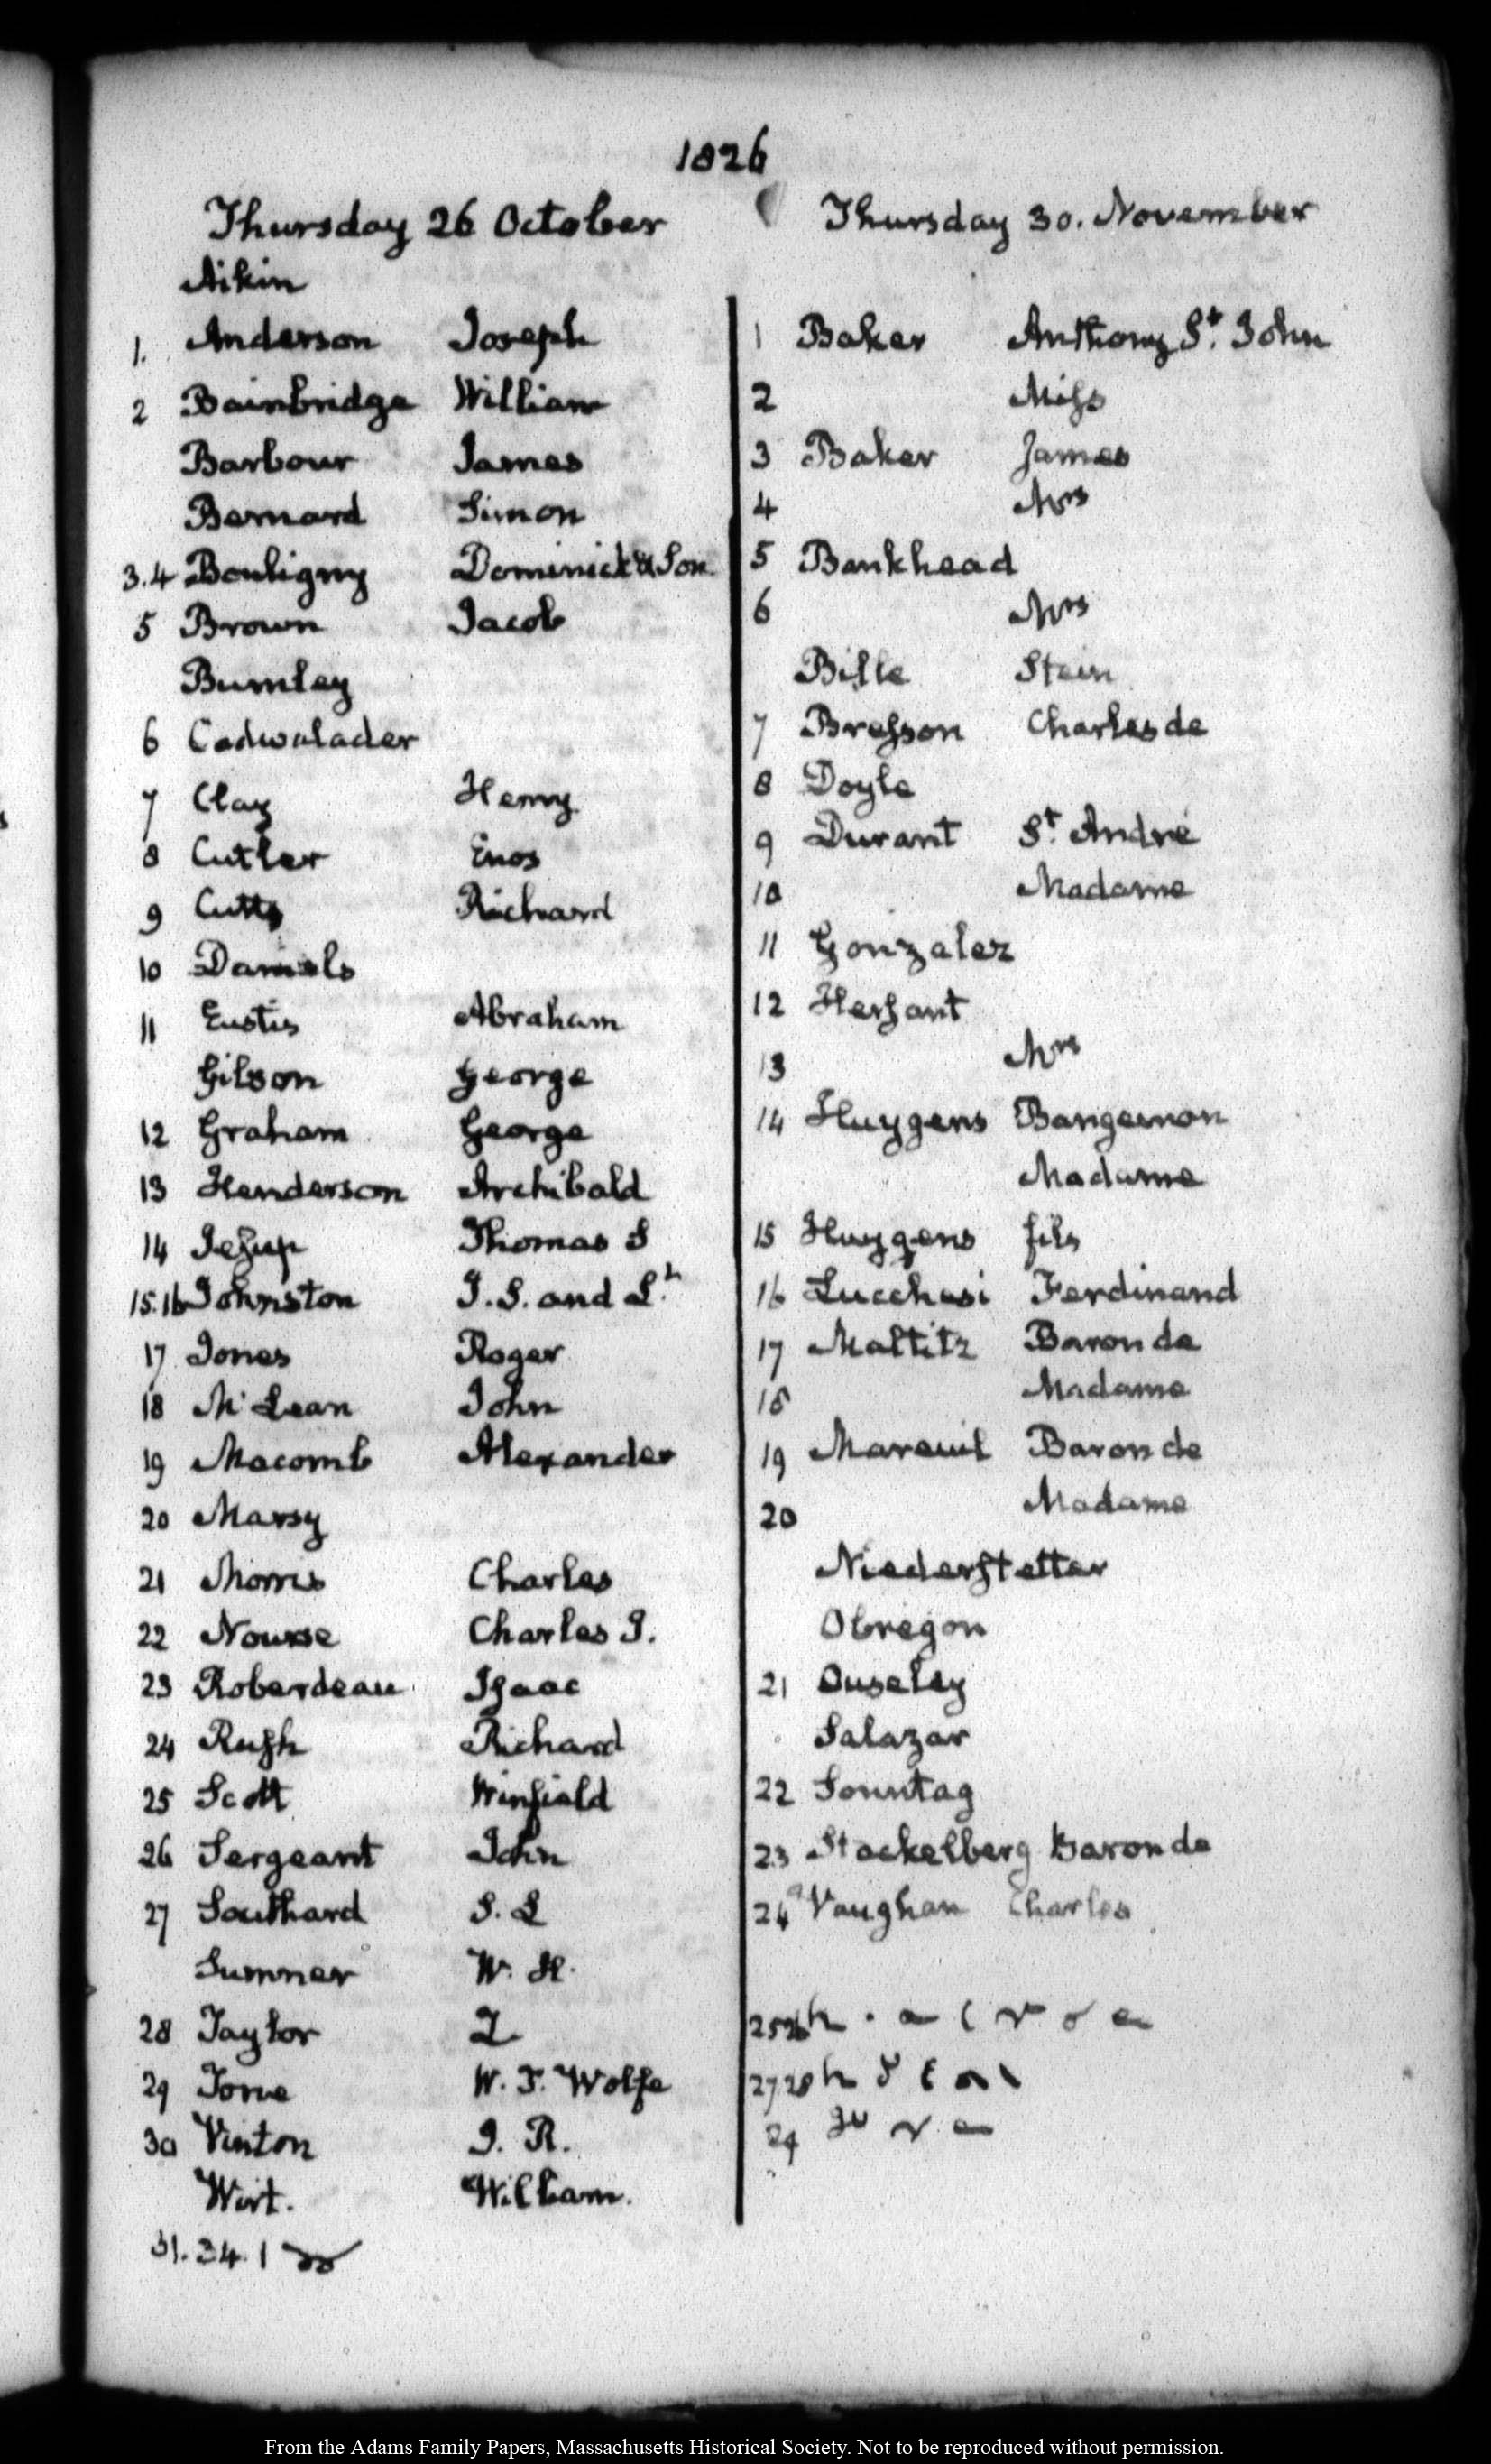 1826
Thursday 26 October
Aikin
1. Anderson Joseph
2 Bainbridge William
Barbour James
Bernard Simon
3.4 Bouligny Dominick & Son
5 Brown Jacob
Bumley
6 Cadwalader
7 Clay Henry
8 Cutler Enos
9 Cutts Richard
10 Daniels
11 Eustis Abraham
Gibson George
12 Graham George
13 Henderson Archibald
14 Jesup Thomas S
15.16 Johnston J. S. and
17 Jones Roger
18 McLean John
19 Macomb Alexander
20 Marsy
21 Morris Charles
22 Nourse Charles J.
23 Roberdeau Isaac
24 Rush Richard
25 Scott Winfield
26 Sergeant John
27 Southard S. L
Sumner W. H.
28 Taylor Z
29 Tone W. T. Wolfe
30 Vinton J. R.
Wirt. William.
31. 34. 1
Thursday 30. November
1 Baker Anthony St. John
2 Miss
3 Baker James
4 Mrs
5 Bankhead
6 Mrs
Bille Steen
7 Bresson Charles de
8 Doyle
9 Durant St. André
10 Madame
11 Gonzalez
12 Hersant
13 Mrs
14 Huygens Bangeman
Madame
15 Huygens fils
16 Lucchesi Ferdinand
17 Maltitz Baron de
18 Madame
19 Mareuil Baron de
20 Madame
Niederstetter
Obregon
21 Ouseley
Salazar
22 Sonntag
23 Stackelberg Baron de
24 Vaughan Charles
25 26
27 28
29
From the Adams Family Papers, Massachusetts Historical Society. Not to be reproduced without permission.